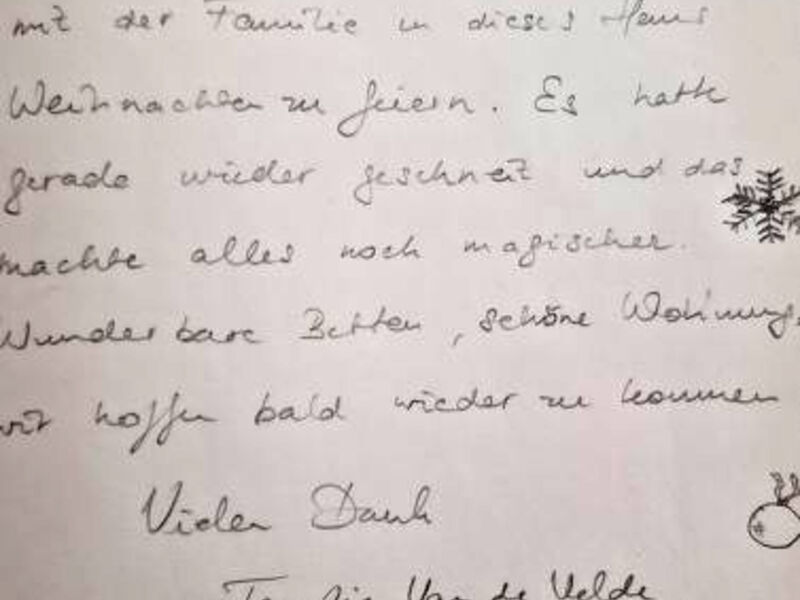 mit der Familie in dieses Haus
Weihnachten zu feiern. Es hatte
gerade wieder geschneit und das
machte alles noch magischer.
Wunderbare Betten, schöne Wohnung,
wir hoffen bald wieder zu kommen
Vielen Dank
Van de Velde